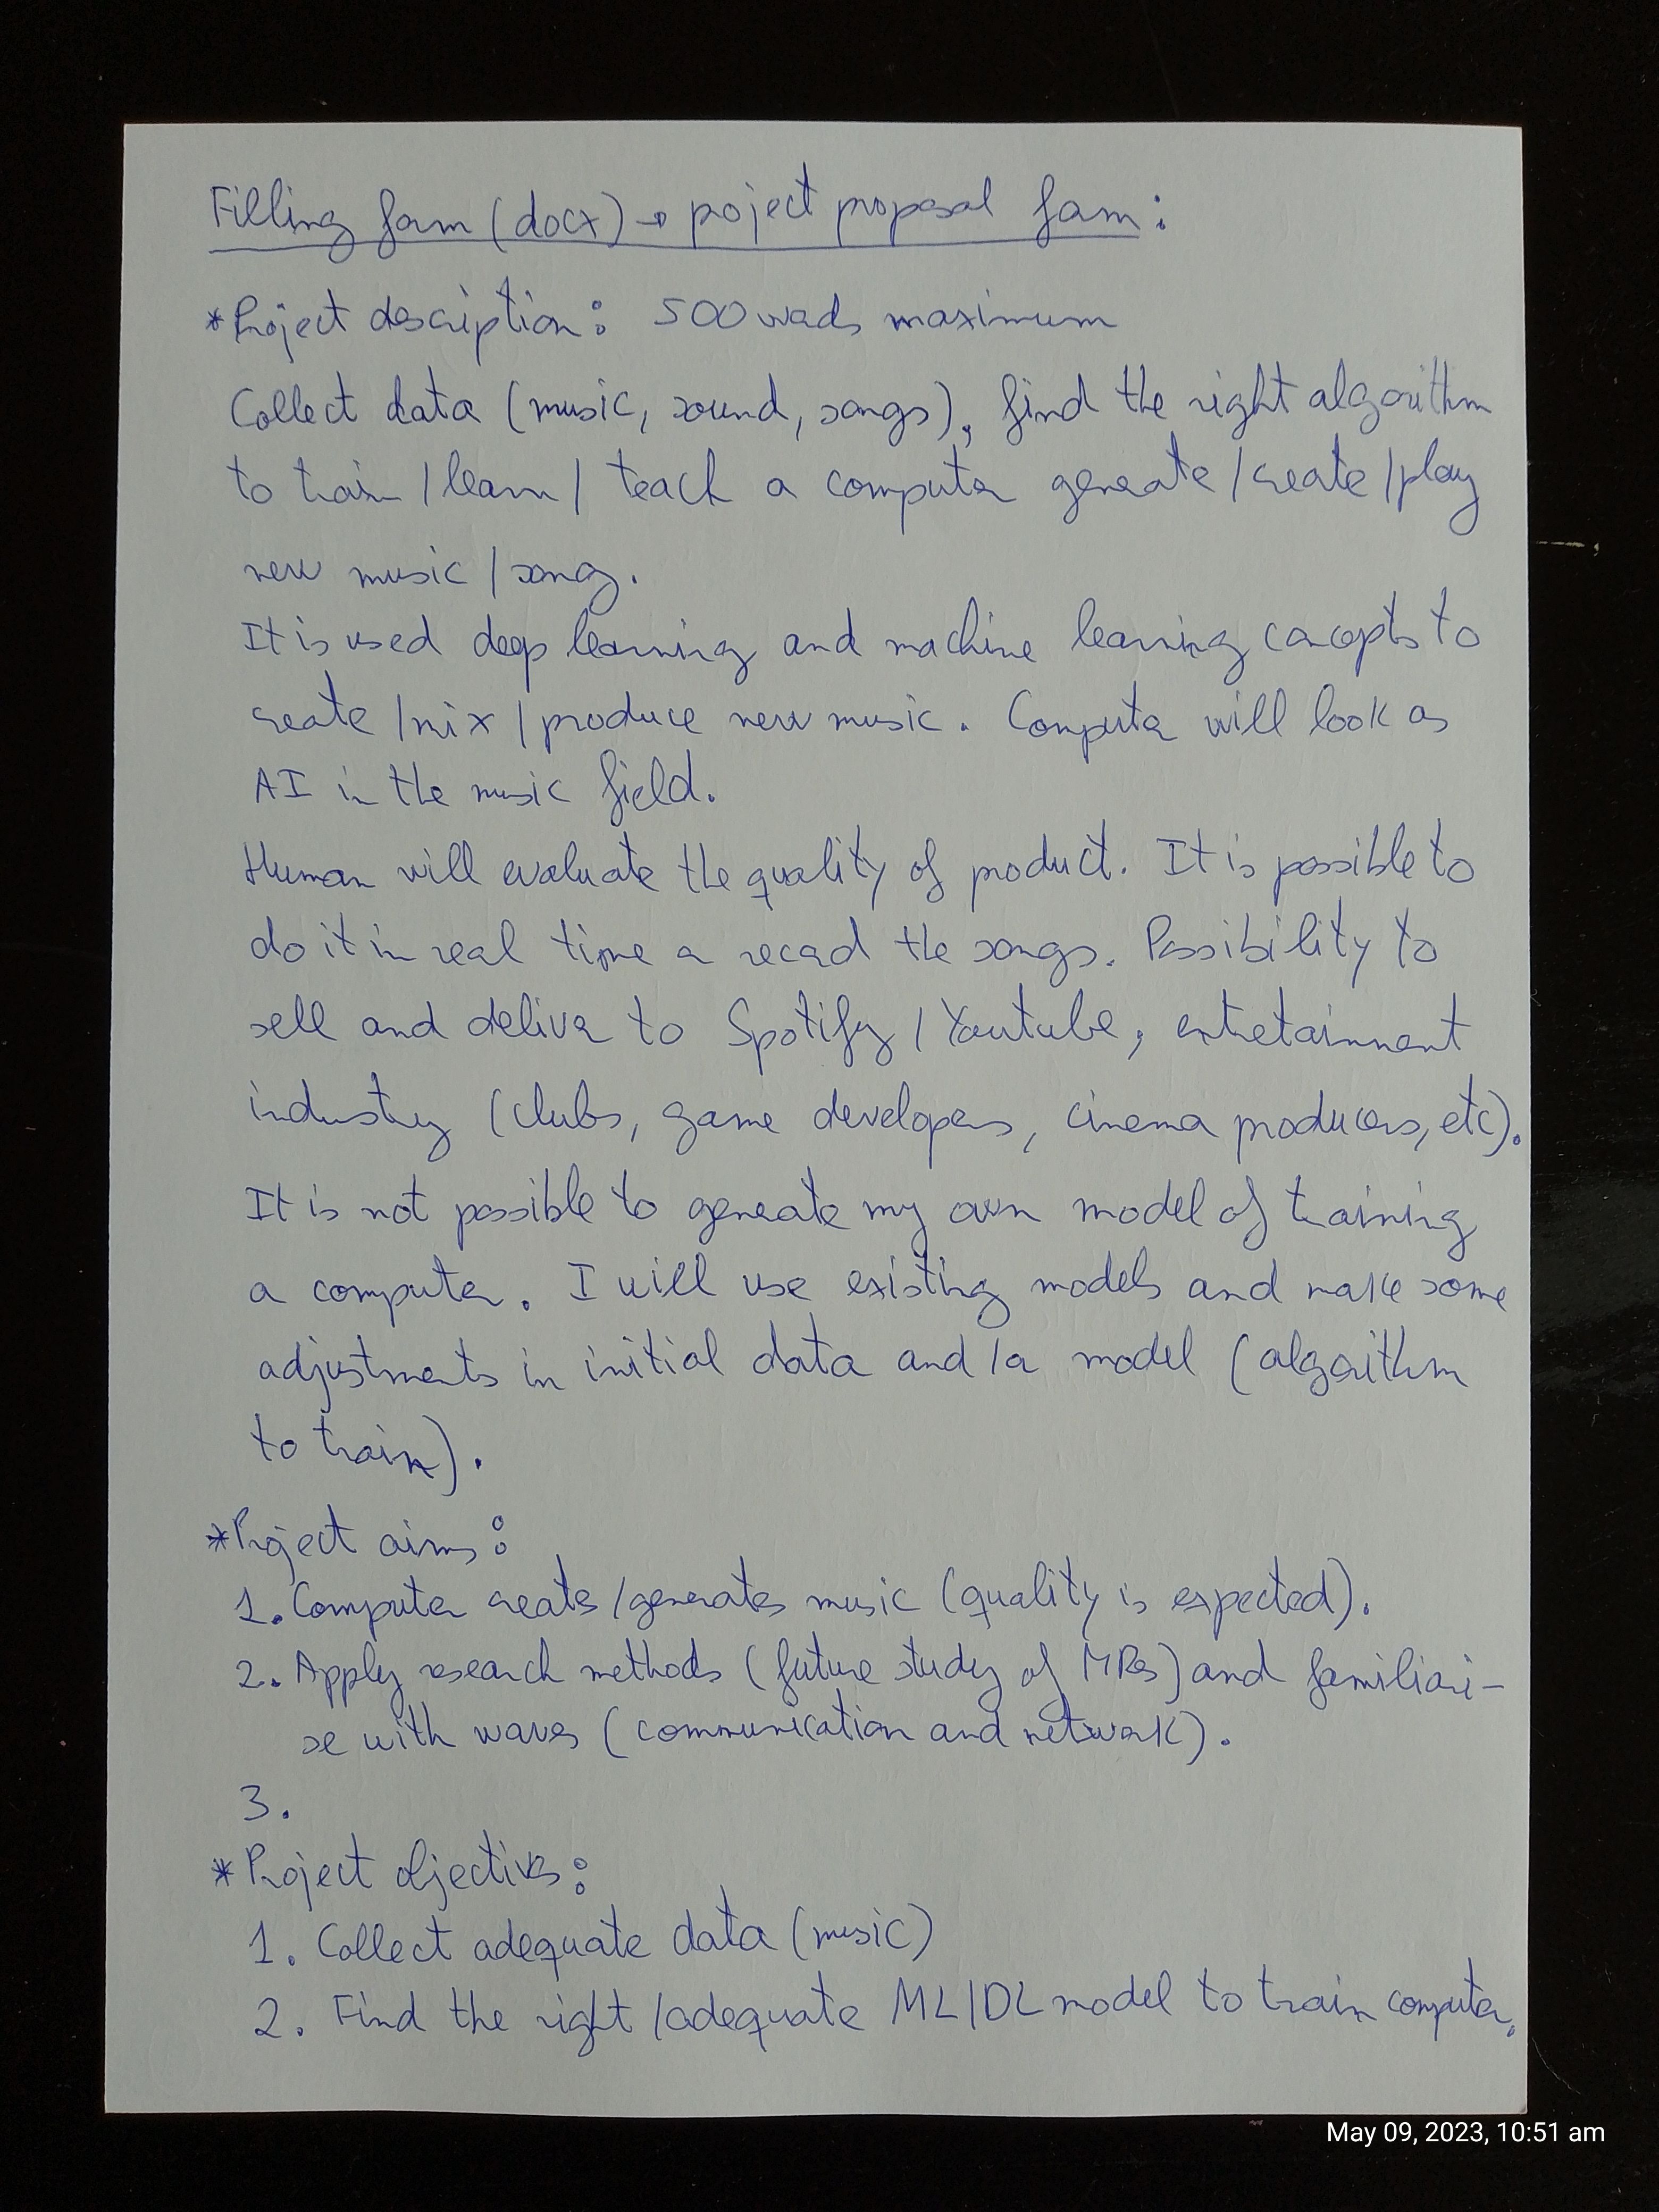 Filling form (docx) → project proposal form:
*Project description: 500 words maximum
Collect data (music, sound, songs), find the right algorithm
to train / learn / teach a computer generate / create / play
new music / song.
It is used deep learning and machine learning concepts to
create / mix / produce new music. Computer will look as
AI in the music field.
Human will evaluate the quality of product. It is possible to
do it in real time or record the songs. Possibility to
sell and deliver to Spotify / Youtube, entretainment
industry (clubs, game developers, cinema producers, etc).
It is not possible to generate my own model of training
a computer. I will use existing models and make some
adjustments in initial data and /or model (algorithm
to train).
*Project aims:
1. Computer creates /generates music (quality is expected).
2. Apply research methods (future study of MRes) and familiari-
se with waves (communication and network).
3.
*Project objectives:
1. Collect adequate data (music)
2. Find the right /adequate ML/DL model to train computer.
May 09, 2023, 10:51 am